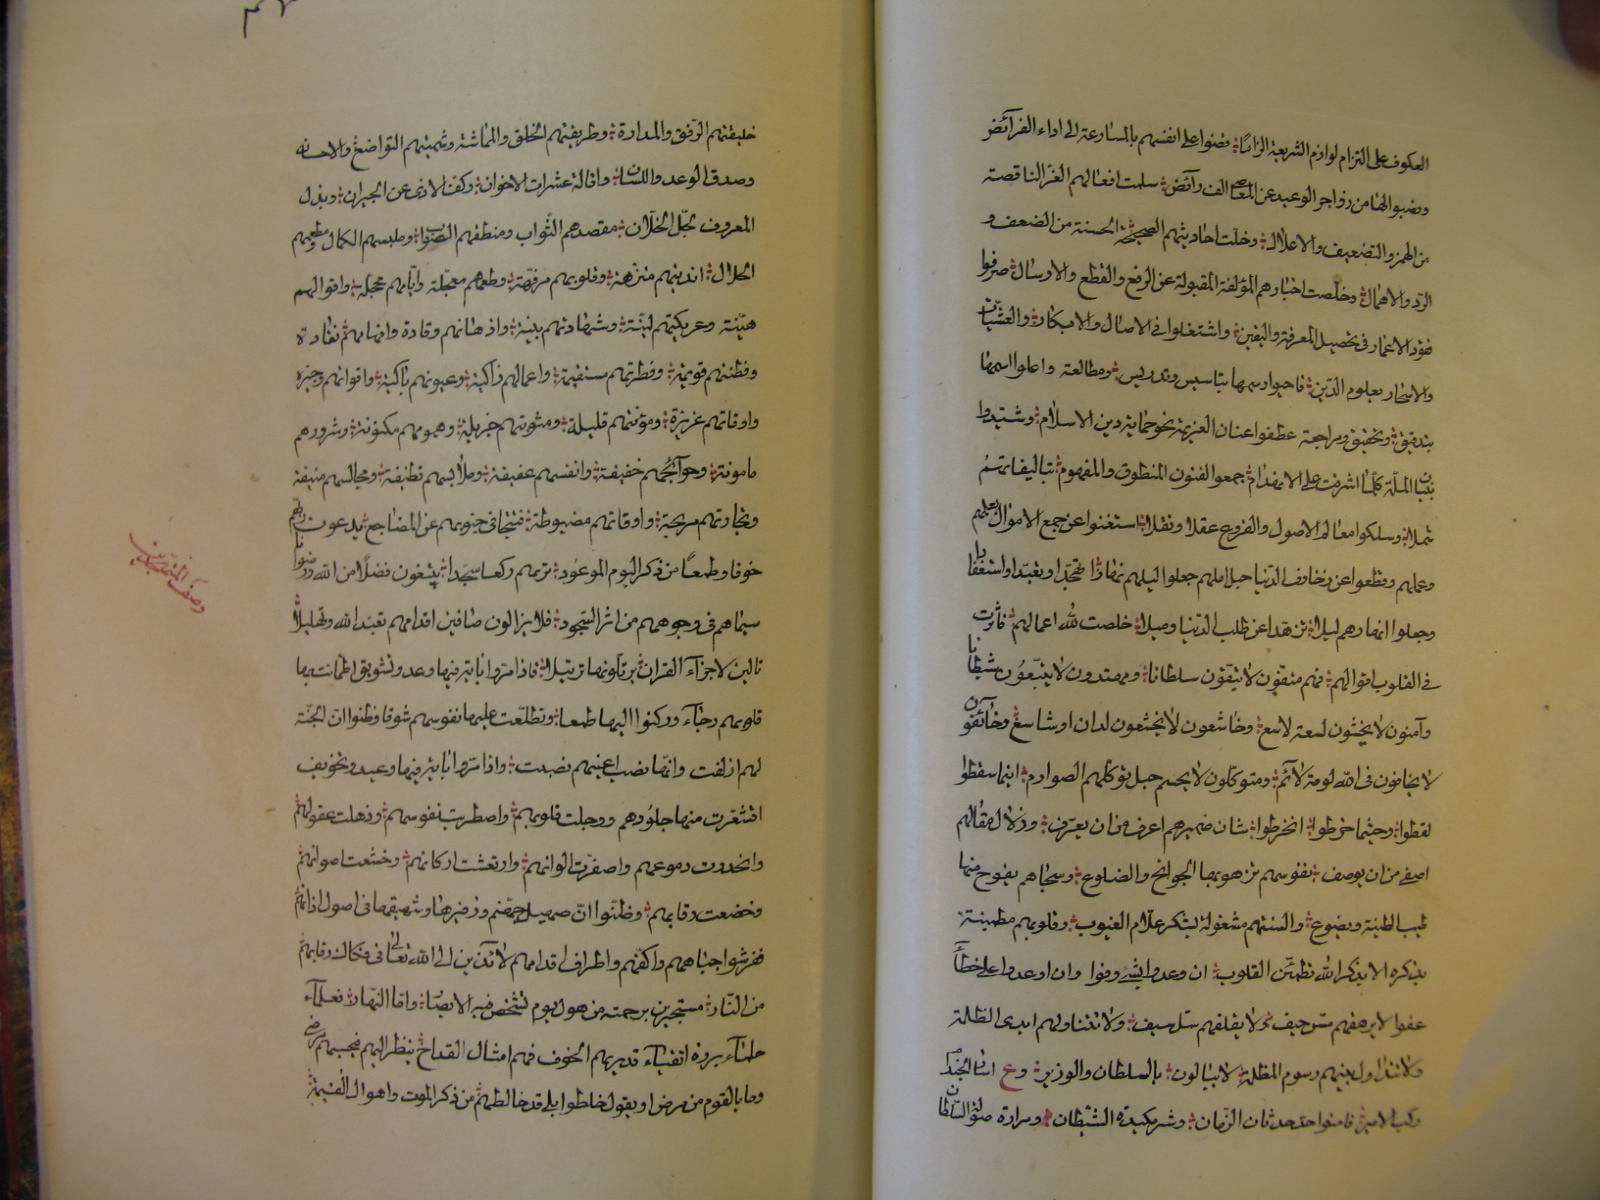 العكوف على التزام لوازم الشريعة الزاما وقضوا على انفسهم بالمسارعة الى اداء الفرآئض
ونصبوا لها من زواجر الوعيد عن سلمت افعالهم الغر الناقصة
من الهمز والتضعيف والاعلال وخلت احاديثهم الصحيحة الحسنة من الضعف و
الرد والاهمال وخلصت اخبارهم المؤلفة المقبولة عن الرفع والقطع والارسال صرفوا
الاعمار فى تحصيل المعرفة واليقين واشتغلوا فى الاصال والابكار والعشيات
والاسحار بعلوم الدين فاحيوا رسمها بتاسيس وتدريس ومطالعة واعلوا اسمها
بتدقيق وتحقيق ومراجعة عطفوا عنان العزيمة نحو حماية دين الاسلام وشيدوا
بنيان الملة كلما اشرفت على الانهدام جمعوا الفنون المنطوق والمفهوم بتاليفاتهم
شملا وسلكوا معالم الاصول والفروع عقلا ونقلا استغنوا عن جمع الاموال بعلمهم
وعملهم وقطعوا عن زخارف الدنيا حبل املهم جعلوا ليلهم نهارا تهجدا وتعبدا واستغفارا
وجعلوا انهارهم ليلا تزهدا عن طلب الدنيا وميلا خلصت لله اعمالهم فاثرت
فى القلوب اقوالهم فهم متقون لا يتقون سلطانا ومهتدون لا يتبعون شيطانا
وآمنون لا يخشون لسعة لاسع وخاشعون لا يخشعون لدان او شاسع وخائفون
لا يخافون فى الله لومة لائم ومتوكلون لا يحسم حبل توكلهم الصوارم اينما سقطوا
لقطوا وحيثما خرطوا انخرطوا شان ضميرهم اعرف من ان يعرف وزلال مقالهم
اصفى من ان يوصف نفوسهم تزهو بها الجوانح والضلوع وسجاياهم يفوح منها
طيب الطينة ويضوع والسنتهم مشغولة بشكر علام الغيوب وقلوبهم مطمئنة
بذكره الا بذكر الله تطمئن القلوب ان وعدوا بشئ وفوا وان اوعدوا على خطأ
عفوا لا يرهقهم مس حيف ولا يقلقهم سل سيف ولا تتناولهم ايدى الظلمة
ولا تتداول بينهم رسوم المظلمة لا يبالون بالسلطان والوزير
فامنوا حدثان الزمان وشر مكيدة الشيطان ومرارة صولة السلطان
خليقتهم الرفق والمدارة وطريقتهم الخلق والمماشة وشيمتهم التواضع والاحسان
وصدق الوعد واللسان واقالة عشرات الاخوان وكف الاذى عن الجيران وبذل
المعروف لجل الخلان مقصدهم الثواب ومنطقهم الصواب وملبسهم الكمال ومطعمهم
الحلال انديتهم منزهة وقلوبهم مرفهة وطعمهم معجلة وايامهم محجلة واقوالهم
هينة وعريكتهم لينة وشهادتهم بينة واذهانهم وقادة وافهامهم نقادة
وفطنتهم قويمة وفطرتهم مستقيمة واعمالهم زاكية وعيونهم باكية واقواتهم وجيزة
واوقاتهم عزيزة ومؤنتهم قليلة ومثوبتهم جزيلة وهمومهم مكنونة وشرورهم
مامونة وحوآئجهم خفيفة وانفسهم عفيفة وملابسهم نظيفة ومجالسهم منيفة
وتجارتهم مربحة واوقاتهم مضبوطة فتتجافى جنوبهم عن المضاجع يدعون ربهم
خوفا وطمعا من ذكر اليوم الموعود تريهم ركعا سجدا يبتغون فضلا من الله ورضوانا
سيماهم فى وجوههم من اثر السجود فلا يزالون صافين اقدامهم تعبدا لله وتهليلا
تالين لاجزاء القرآن يرتلونها ترتيلا فاذا مروا باية فيها وعد وتشويق اطمانت بها
قلوبهم رجاء وركنوا اليها طمعا وتطلعت عليها نفوسهم شوقا وظنوا ان الجنة
لهم ازلفت وانها نصب اعينهم نصبت واذا مروا باية فيها وعيد وتخويف
اقشعرت منها جلودهم ووجلت قلوبهم واضطربت نفوسهم وذهلت عقولهم
وانحدرت دموعهم واصفرت الوانهم وارتعشت اركانهم وخشعت اصواتهم
وخضعت رقابهم وظنوا ان صهيل جهنم وزفيرها وشهيقها فى اصول اذانهم
ففرشوا جباههم واكفهم واطراف اقدامهم لائذين الى الله تعالى فى فكاك رقابهم
من النار مستجيرين برحمته من هول يوم تشخص فيه الابصار واما النهار فعلماء
حلماء بررة اتقياء قد بريهم الخوف فهم امثال القداح ينظر اليهم فيحسبهم مرضى
وما بالقوم من مرض او يقول خلطوا بلى قد خالطهم من ذكر الموت واهوال القيمة
وصف المجتهدين